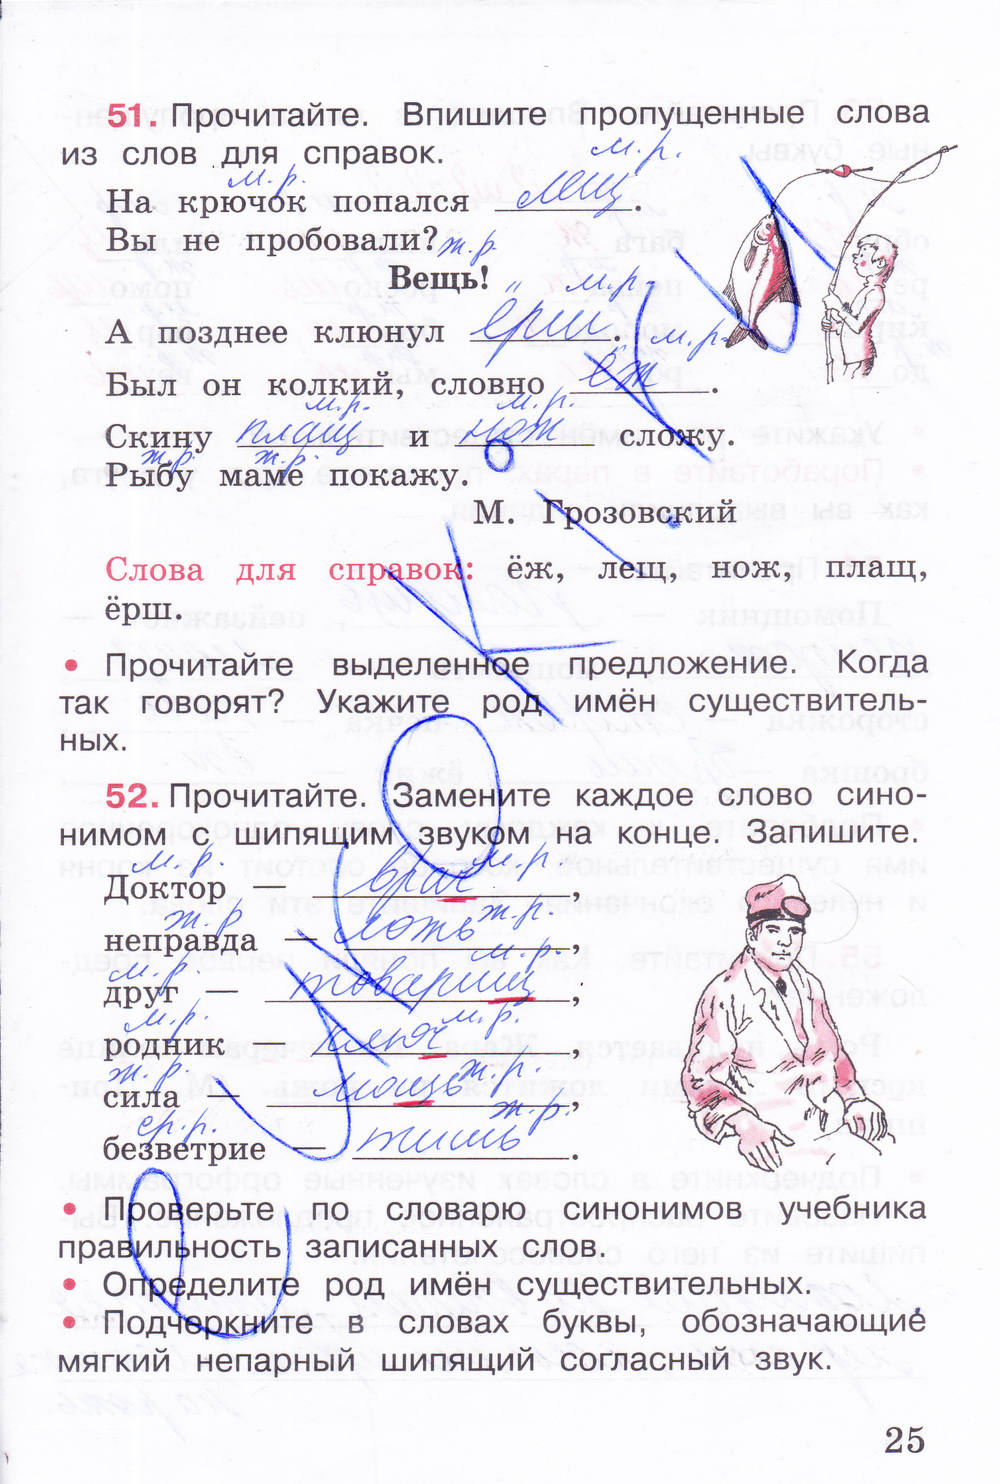 51. Прочитайте. Впишите пропущенные слова
из слов для справок.
м. р.
м. р.
На крючок попался лещ.
Вы не пробовали? ж. р.
Вещь!
м. р.
А позднее клюнул ёрш.
м. р.
Был он колкий, словно ёж.
м. р. м. р.
Скину плащ и нож сложу.
ж. р. ж. р.
Рыбу маме покажу.
М. Грозовский
Слова для справок: ёж, лещ, нож, плащ,
ёрш.
• Прочитайте выделенное предложение. Когда
так говорят? Укажите род имён существитель-
ных.
52. Прочитайте. Замените каждое слово сино-
нимом с шипящим звуком на конце. Запишите.
м. р. м. р.
Доктор — врач,
ж. р. ж. р.
неправда — ложь,
м. р. м. р.
друг — товарищ,
м. р. м. р.
родник — ключ,
ж. р. ж. р.
сила — мощь,
ср. р. ж. р.
безветрие — тишь.
• Проверьте по словарю синонимов учебника
правильность записанных слов.
• Определите род имён существительных.
• Подчеркните в словах буквы, обозначающие
мягкий непарный шипящий согласный звук.
25